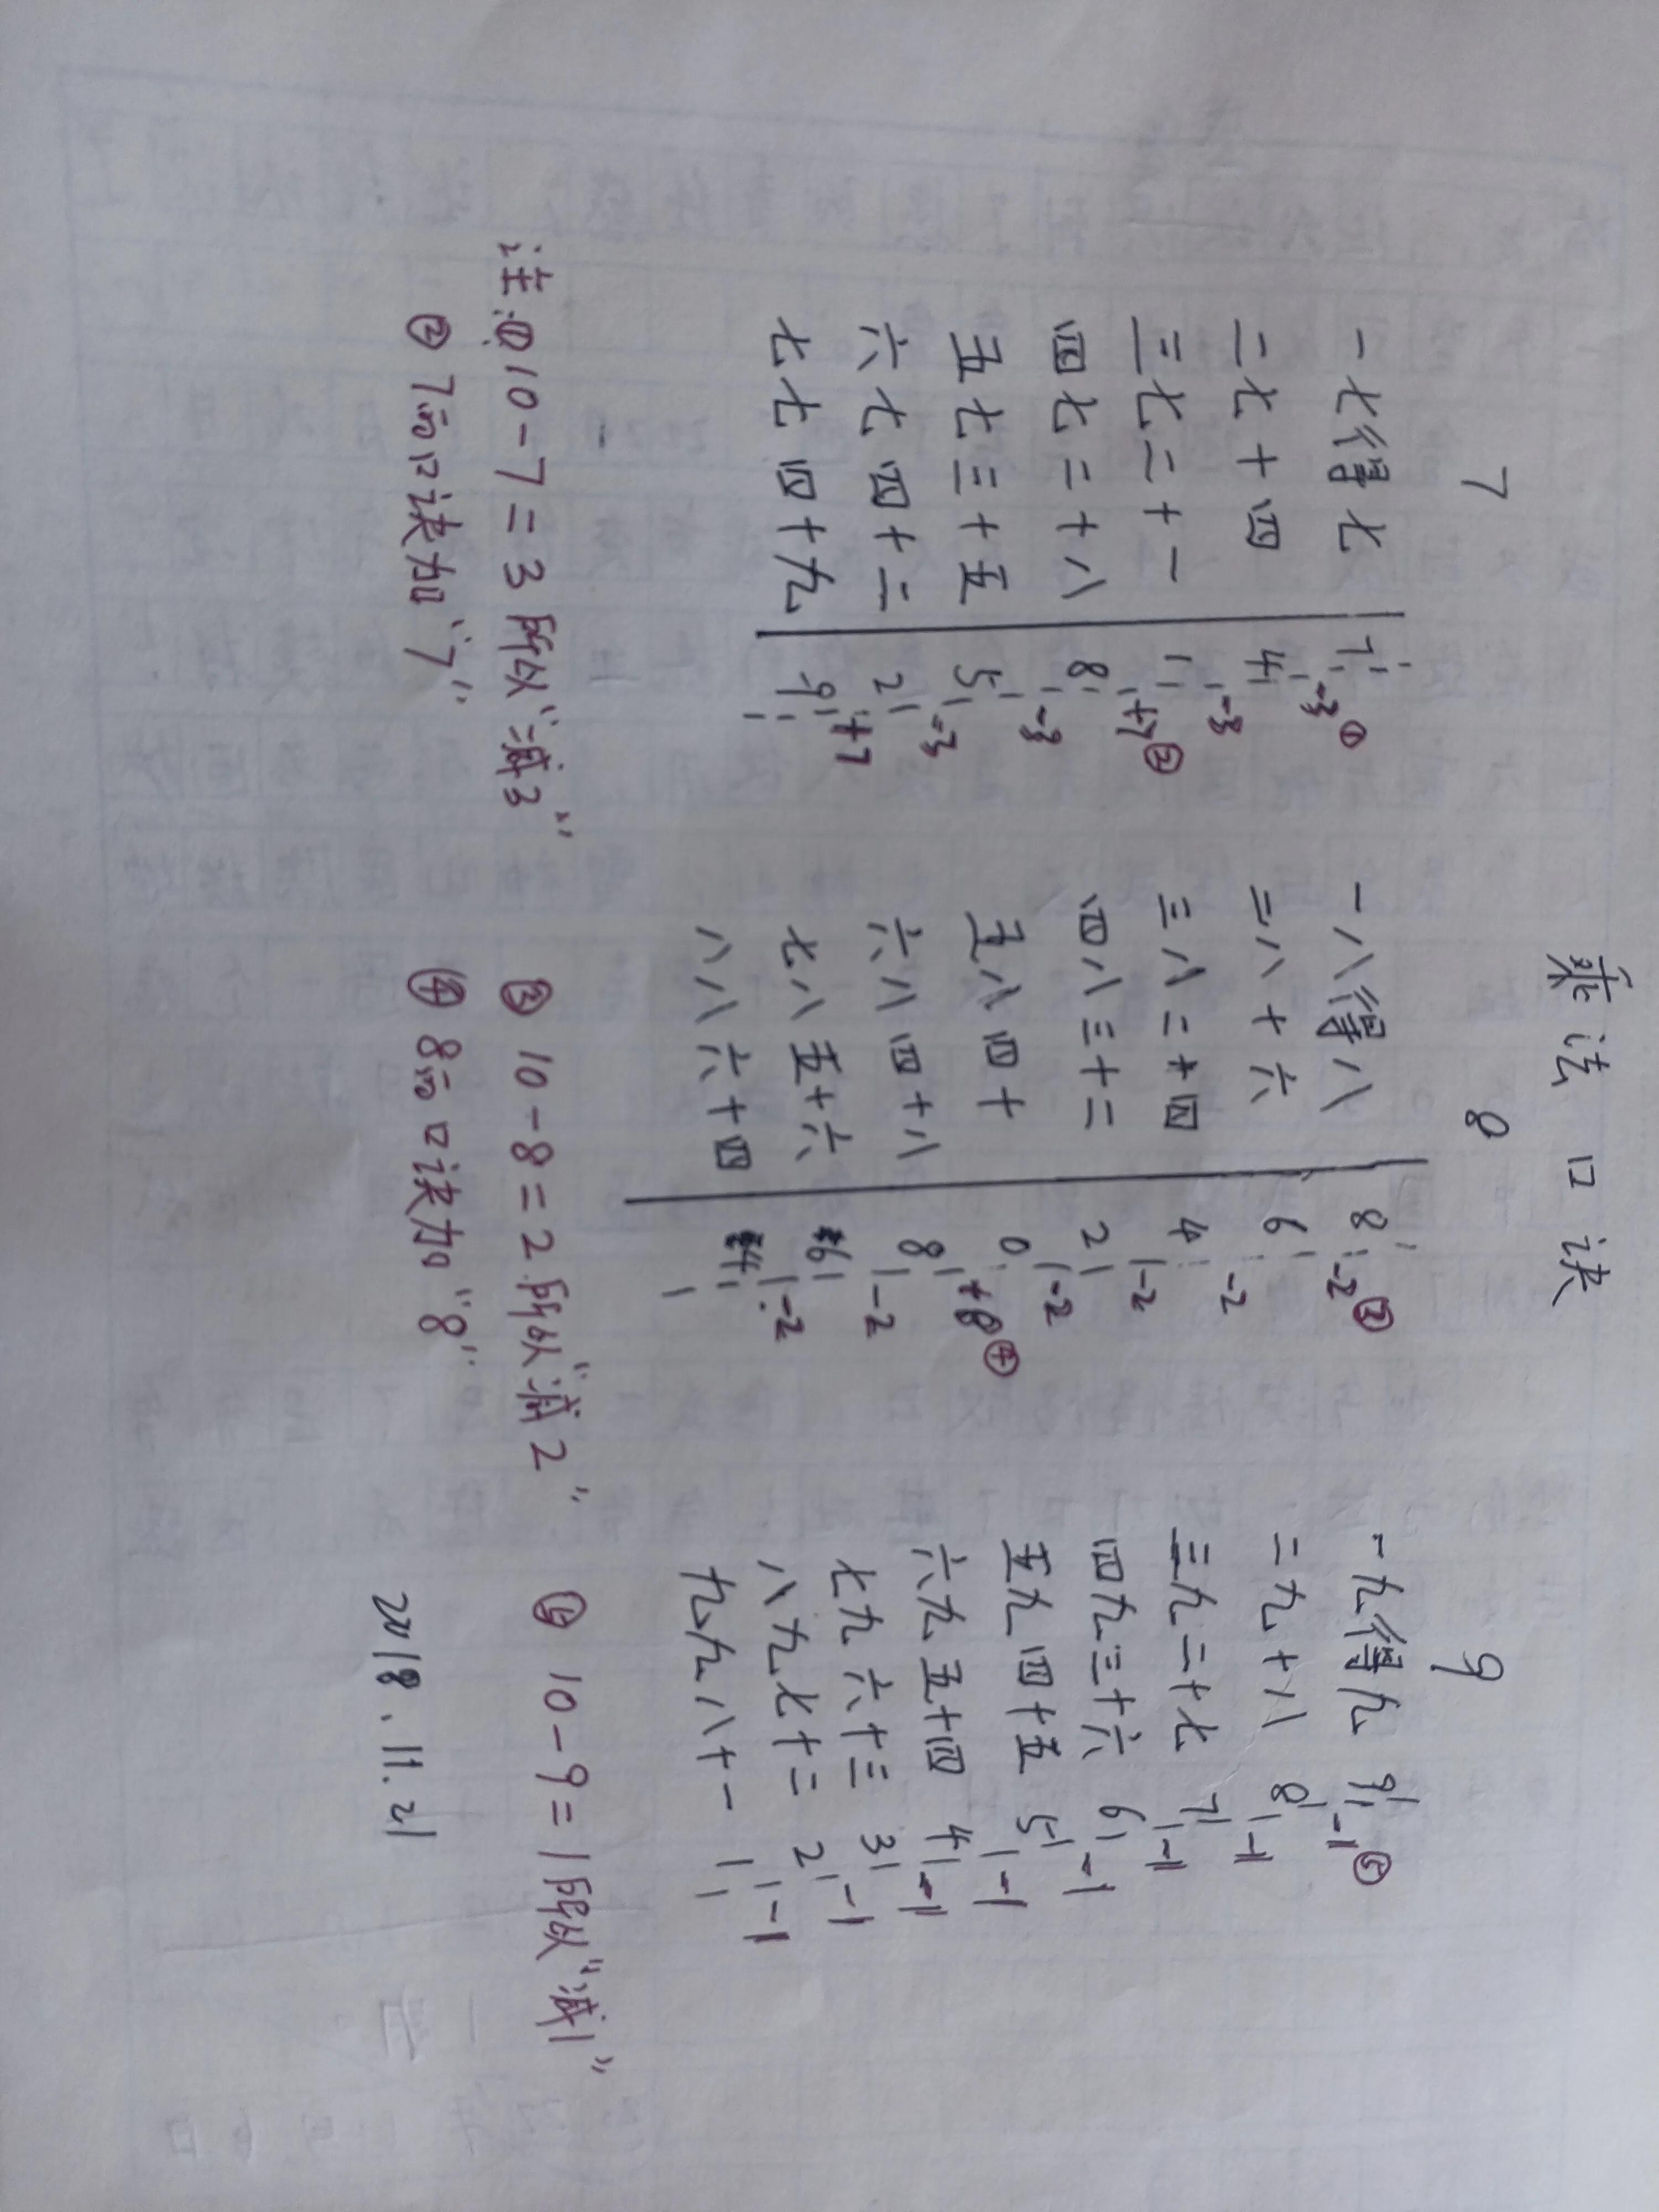 乘法口诀
7 8 9
一七得七 7 一八得八 8 一九得九 9
-3 ① -2 ③ -1 ⑤
二七十四 4 二八十六 6 二九十八 8
-3 -2 -1
三七二十一 1 三八二十四 4 三九二十七 7
+7 ② -2 -1
四七二十八 8 四八三十二 2 四九三十六 6
-3 -2 -1
五七三十五 5 五八四十 0 五九四十五 5
-3 +8 ④ -1
六七四十二 2 六八四十八 8 六九五十四 4
+7 -2 -1
七七四十九 9 七八五十六 6 七九六十三 3
-2 -1
八八六十四 4 八九七十二 2
-1
九九八十一 1
注:①10-7=3所以“减3” ③10-8=2所以“减2” ⑤10-9=1所以“减1”
②7的口诀加“7” ④8的口诀加“8”
2018.11.21